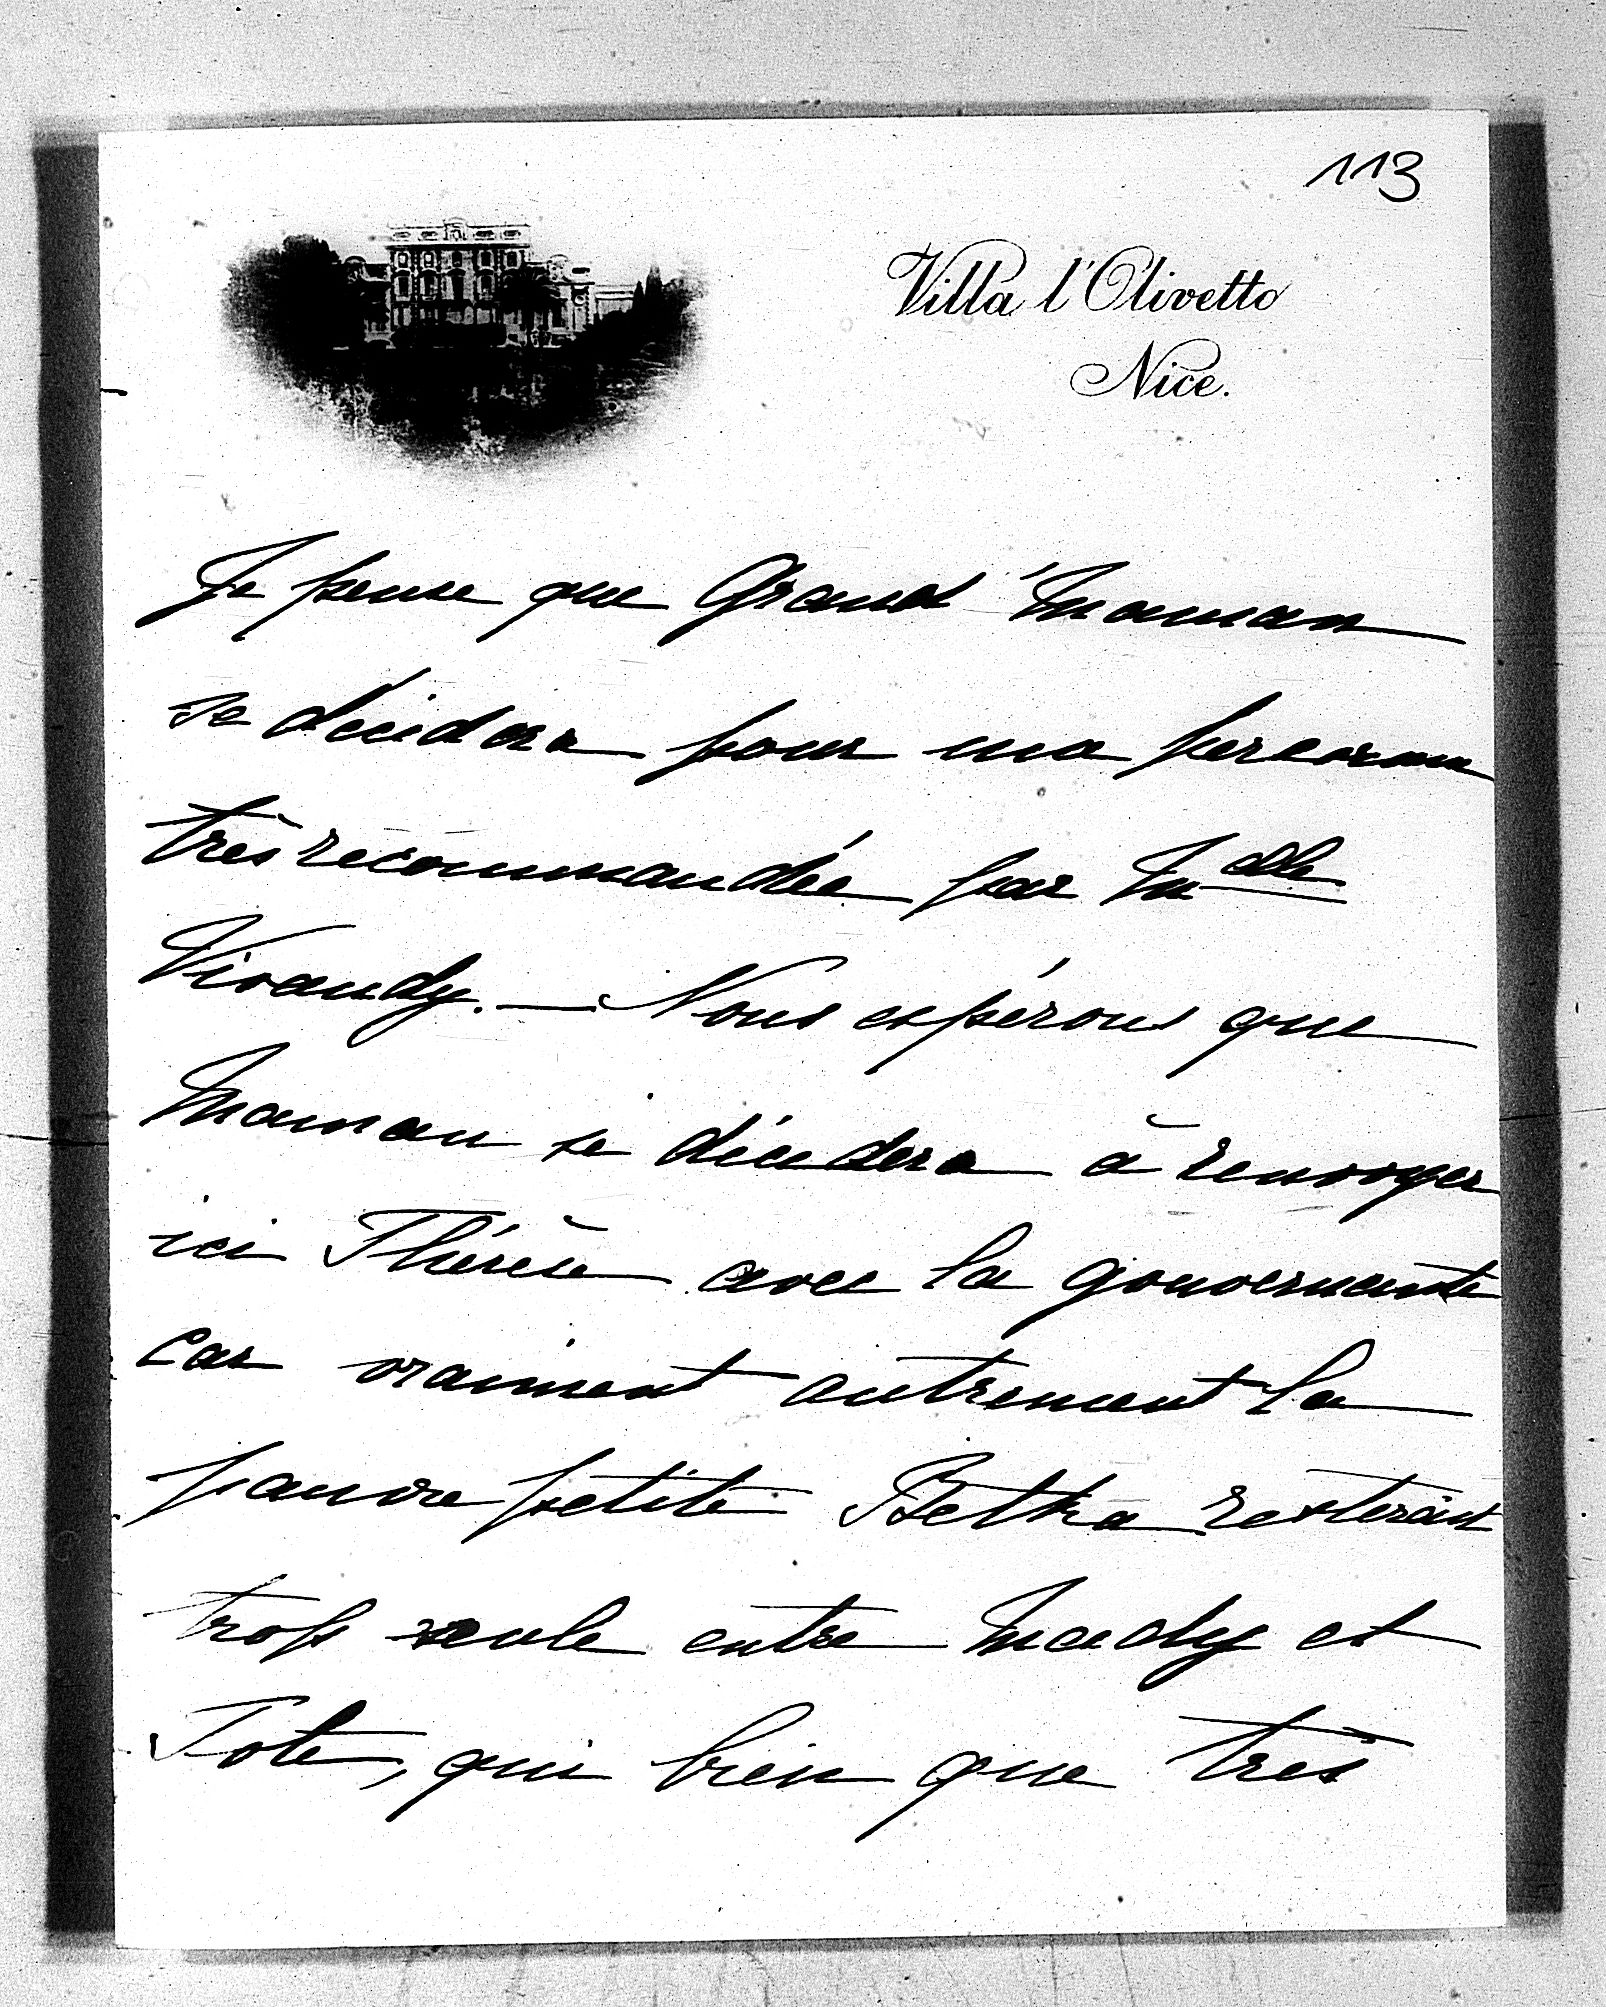 113
Villa l'Olivetto
Nice.
Je pense que Grand'Maman
se décidera pour une personne
très recommandée par Melle
Vivaudy. — Nous espérons que
Maman se décidera à renvoyer
ici Thérèse avec la gouvernante
car vraiment autrement la
pauvre petite Betka resterait
trop seule entre Mady et
Tote, qui bien que très